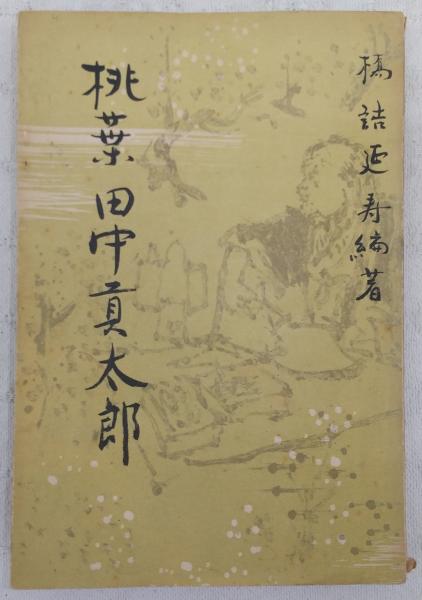 橋詰延寿編著
桃葉 田中貢太郎